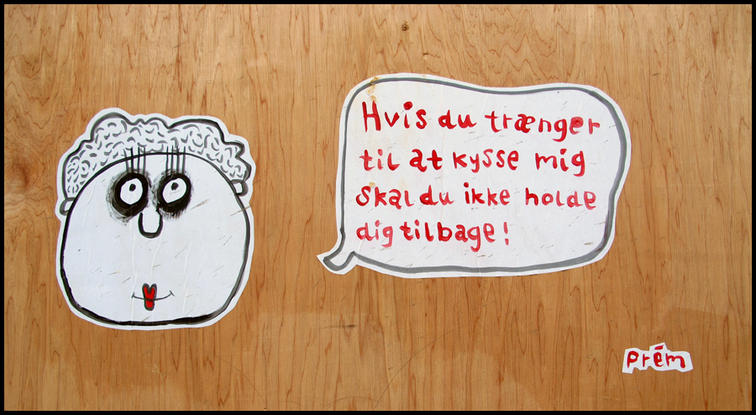 Hvis du trænger
til at kysse mig
skal du ikke holde
dig tilbage!
prém